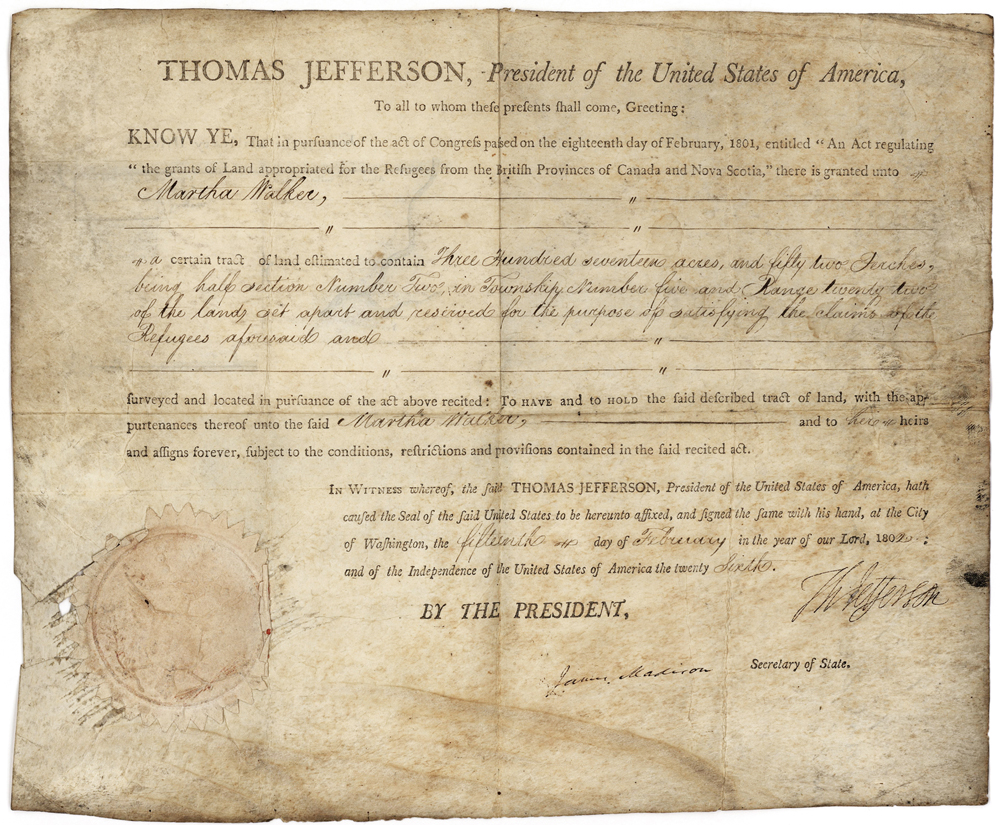 THOMAS JEFFERSON, President of the United States of America,
To all to whom theſe preſents ſhall come, Greeting:
KNOW YE, That in purſuance of the act of Congreſs paſsed on the eighteenth day of February, 1801, entitled "An Act regulating
"the grants of Land appropriated for the Refugees from the Britiſh Provinces of Canada and Nova Scotia," there is granted unto
Martha Walker,
a certain tract of land eſtimated to contain Three Hundred seventeen acres, and fifty two Perches,
being half section Number Two, in Township Number five and Range twenty two
of the lands set apart and reserved for the purpose of satisfying the claims of the
Refugees aforesaid and
ſurveyed and located in purſuance of the act above recited: TO HAVE and TO HOLD the ſaid deſcribed tract of land, with the ap-
purtenances thereof unto the ſaid Martha Walker, and to her heirs
and aſſigns forever, ſubject to the conditions, reſtrictions and proviſions contained in the ſaid recited act.
IN WITNESS whereof, the ſaid THOMAS JEFFERSON, Preſident of the United States of America, hath
cauſed the Seal of the ſaid United States to be hereunto affixed, and ſigned the ſame with his hand, at the City
of Waſhington, the fifteenth day of February in the year of our Lord, 1802;
and of the Independence of the United States of America the twenty Sixth.
Th Jefferson
BY THE PRESIDENT,
James Madison Secretary of State.